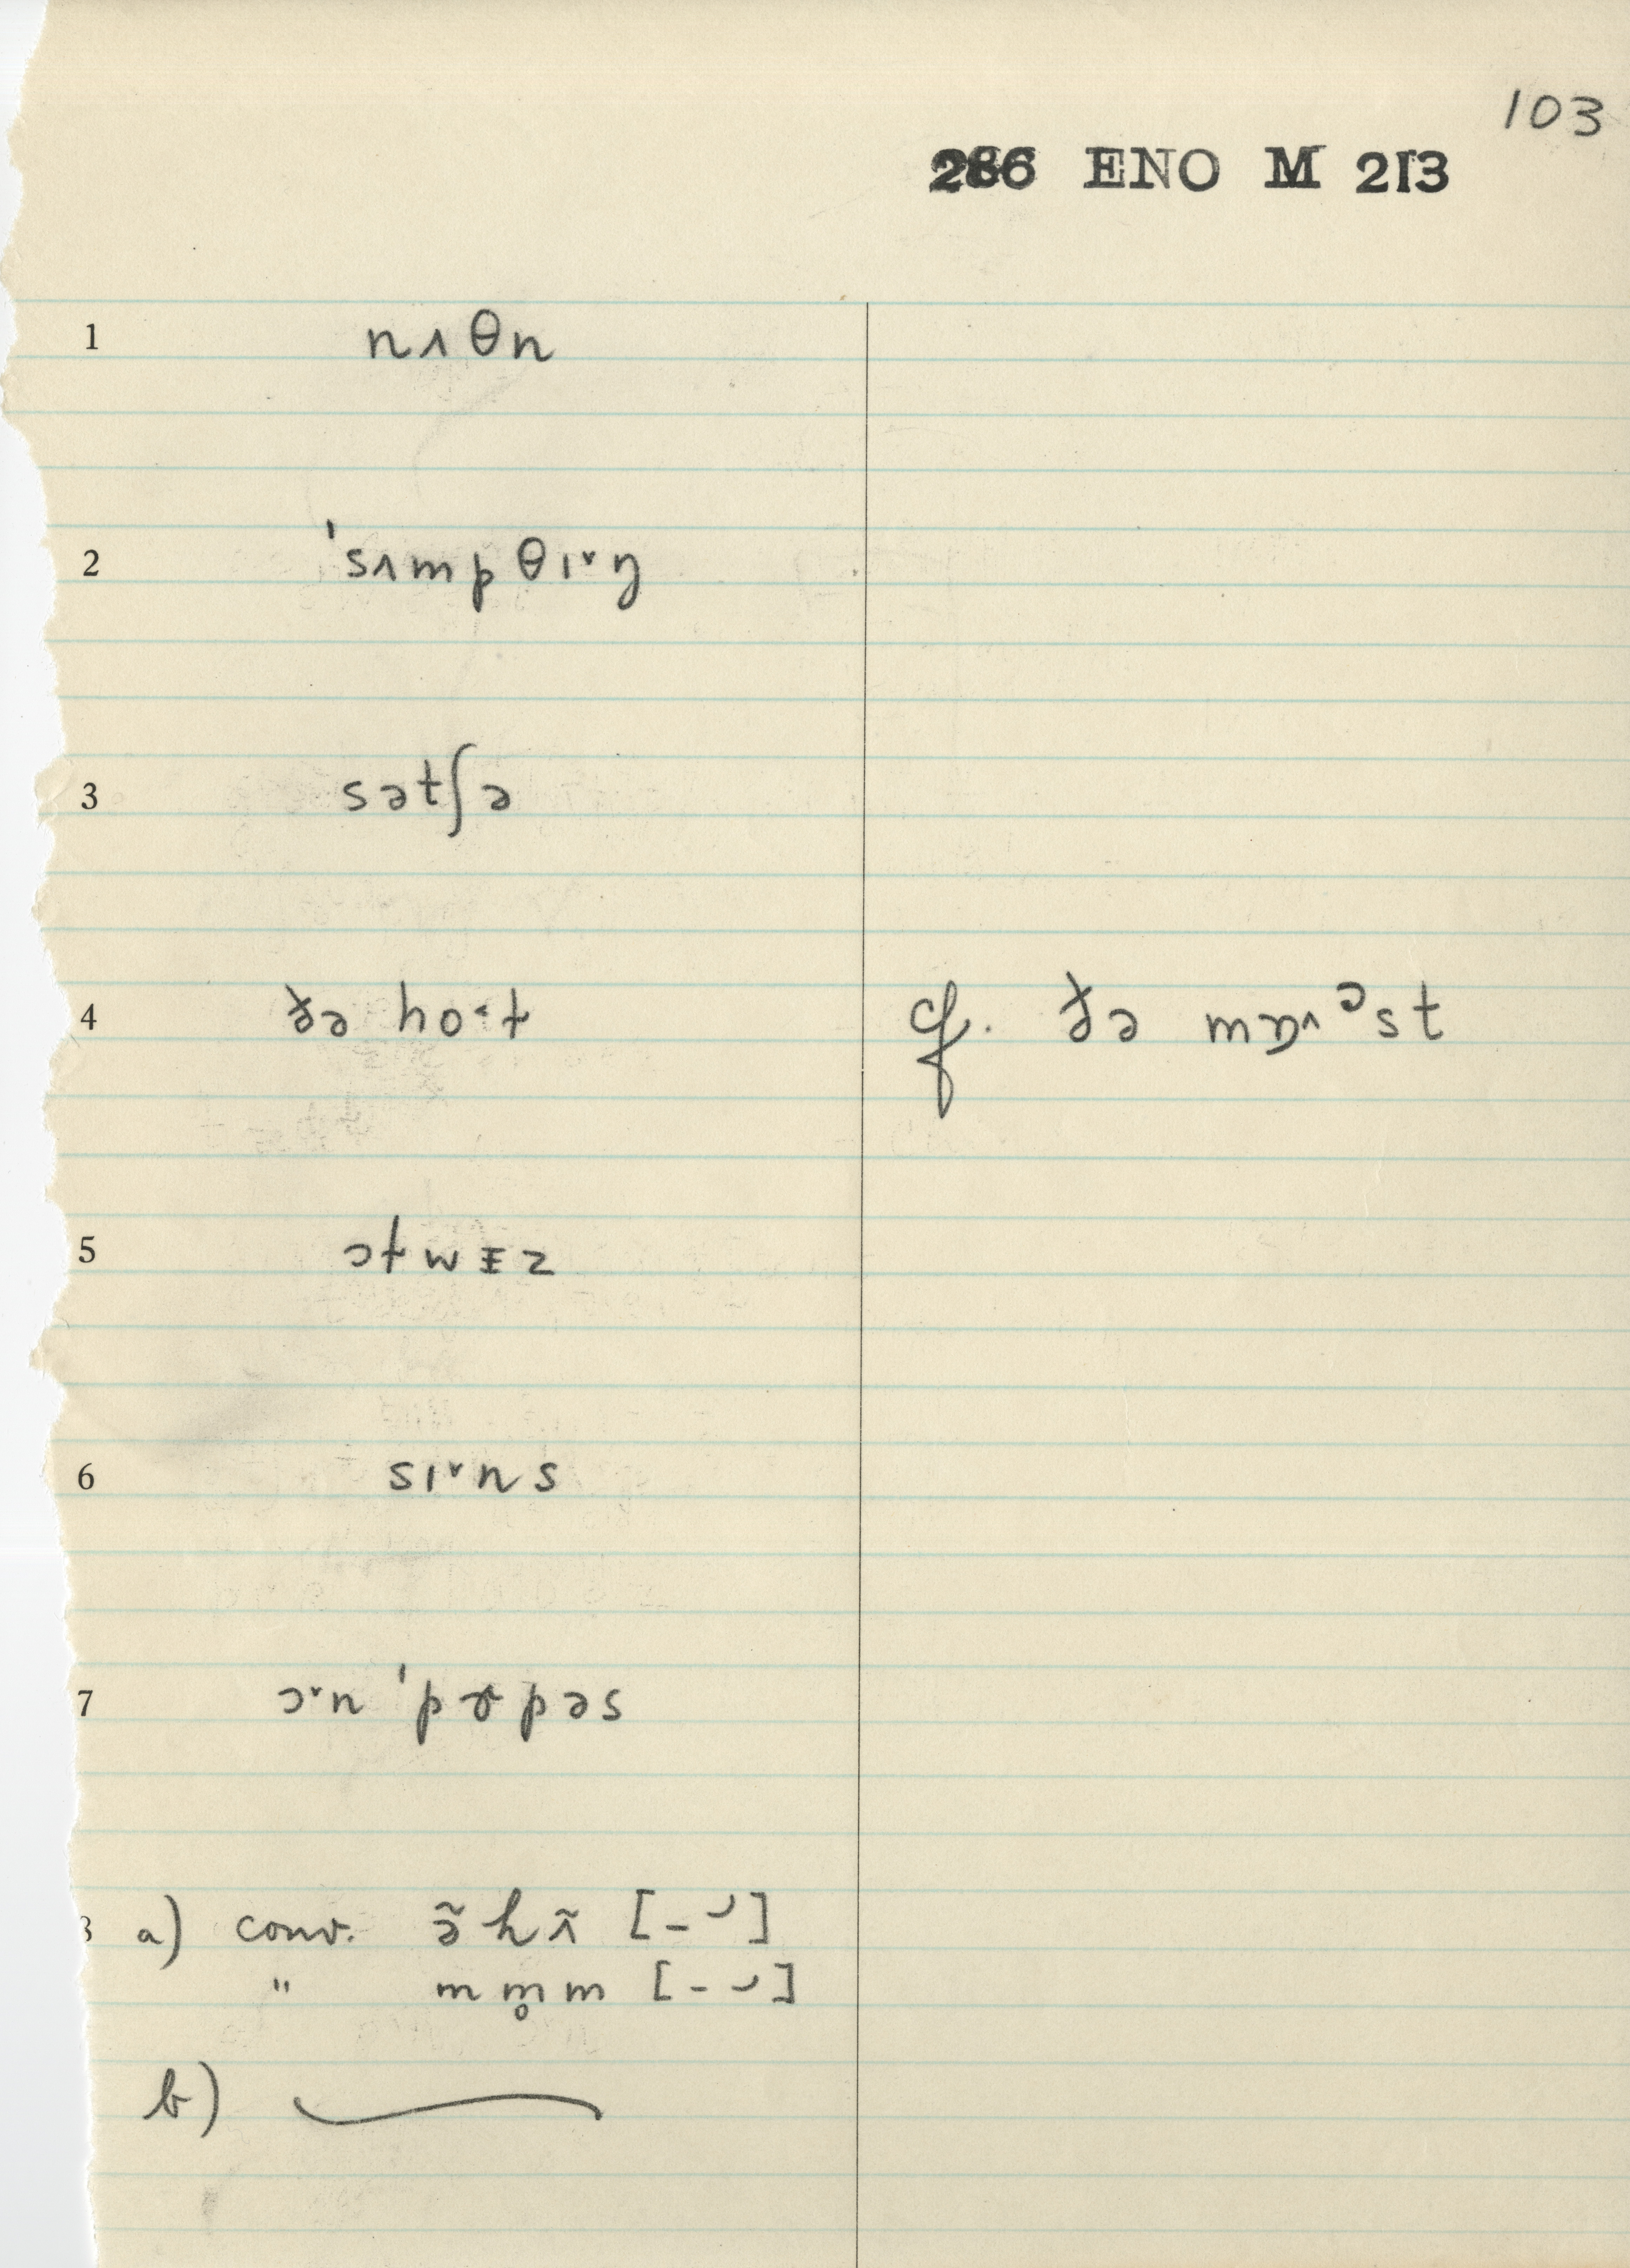 103
286 ENO M 213
1 nʌθn
2 ˈsʌmpθɪ˅ŋ
3 sətʃə
4 ðə ho˂t cf. ðə mɒ^ɔst
5 ɔtwɪz
6 sɪ˅ns
7 ɔ˅n ˈpɝpəs
8 a) conv. ə̃hʌ̃ [-⌣]
" mm̥m [-⌣]
b)